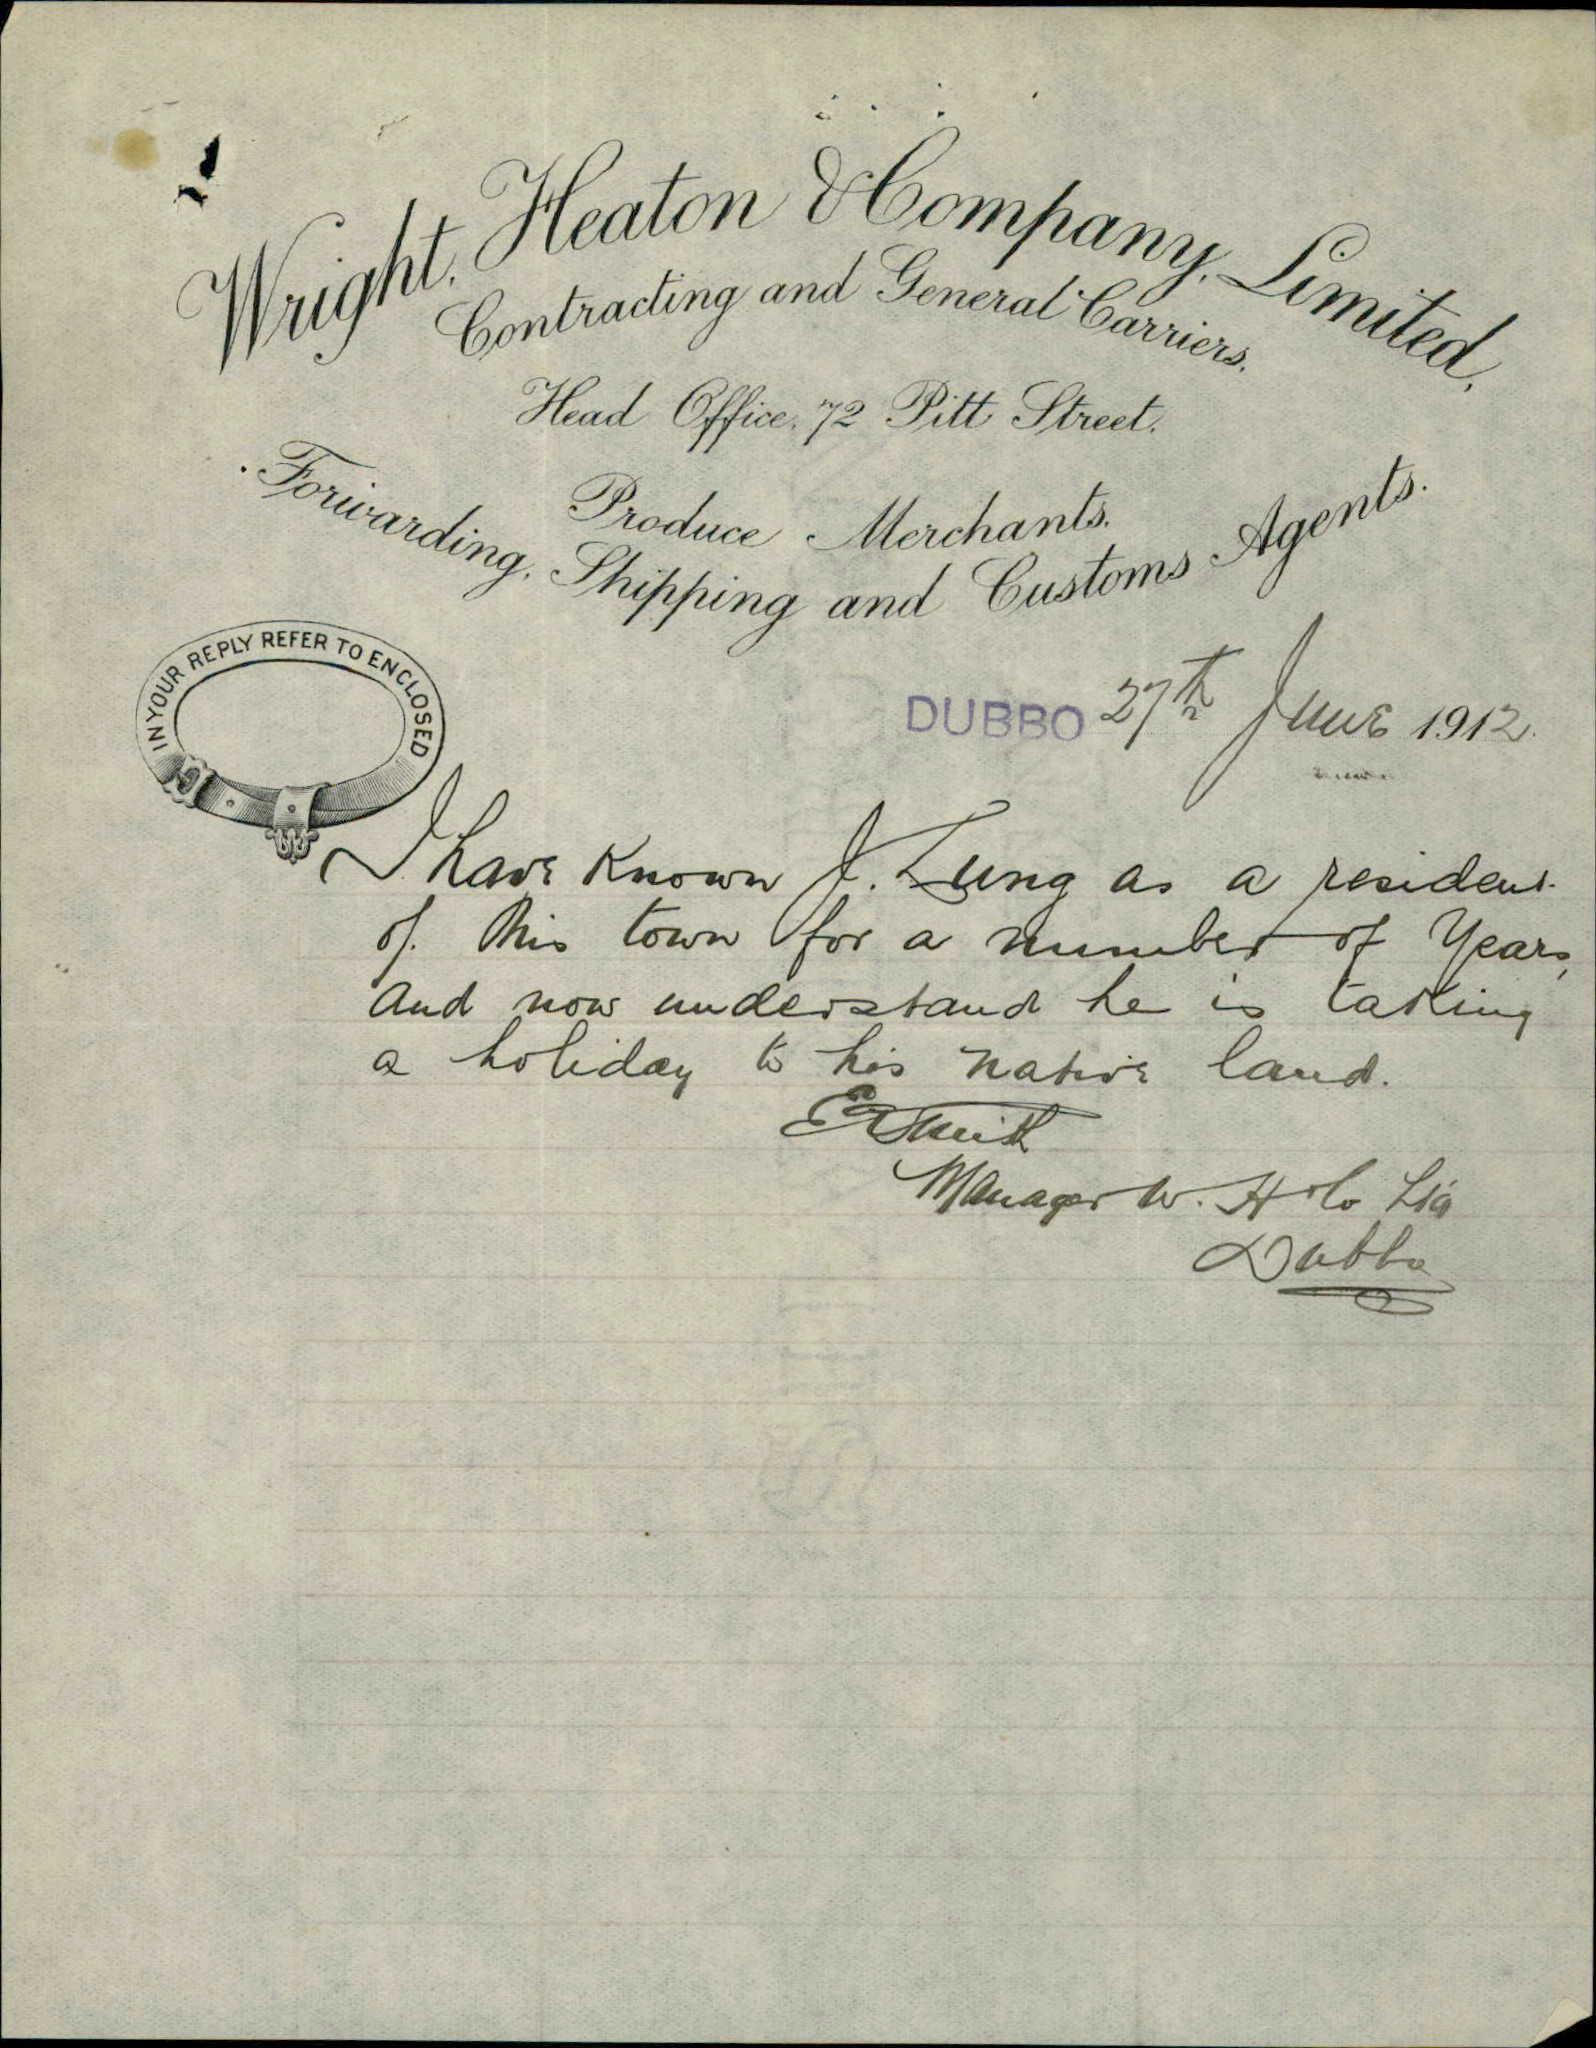 Wright, Heaton & Company, Limited,
Contracting and General Carriers.
Head Office, 72 Pitt Street.
Produce Merchants.
Forwarding, Shipping and Customs Agents.
IN YOUR REPLY REFER TO ENCLOSED
DUBBO 27th June 1912.
I have known J. Lung as a resident
of this town for a number of Years,
and now understand he is taking
a holiday to his native land.
E Smith
Manager W. H & Co Ltd
Dubbo